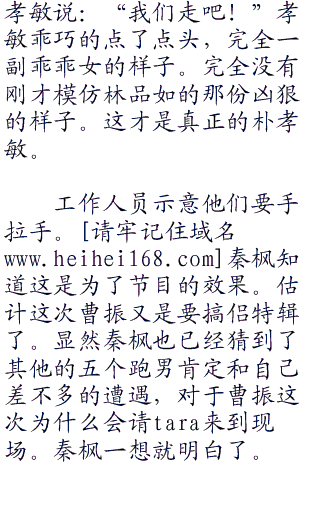 孝敏说：“我们走吧！”孝
敏乖巧的点了点头，完全一
副乖乖女的样子。完全没有
刚才模仿林品如的那份凶狠
的样子。这才是真正的朴孝
敏。
工作人员示意他们要手
拉手。[请牢记住域名
www.heihei168.com]秦枫知
道这是为了节目的效果。估
计这次曹振又是要搞侣特辑
了。显然秦枫也已经猜到了
其他的五个跑男肯定和自己
差不多的遭遇，对于曹振这
次为什么会请tara来到现
场。秦枫一想就明白了。